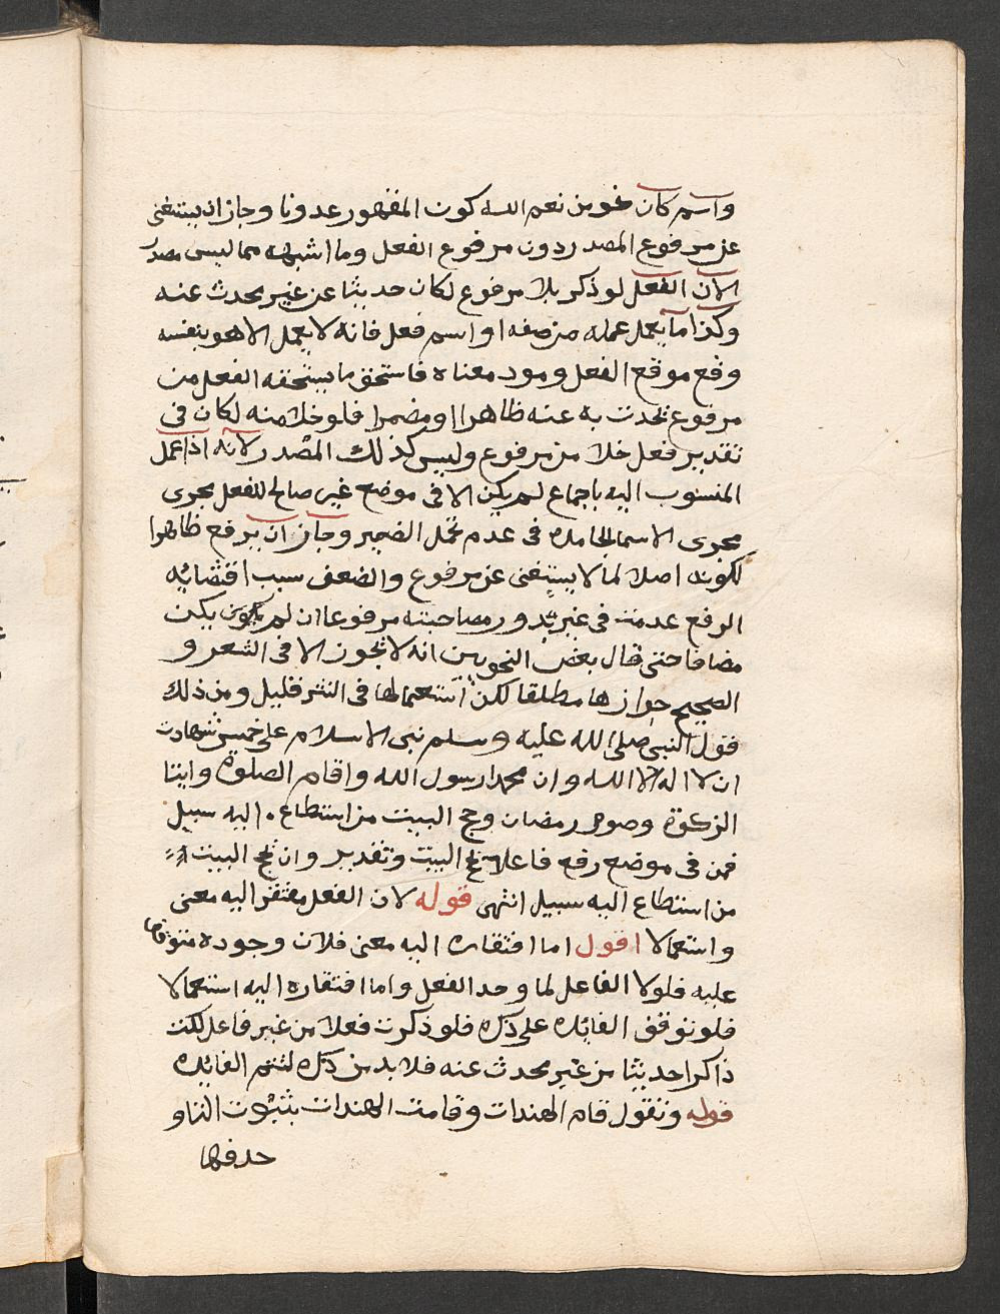 واسم كان نحو من نعم الله كون المقهور عدونا وجاز ان يستغنى
عن مرفوع المصدر دون مرفوع الفعل وما اشبهه مما ليس مصدر
لان الفعل لو ذكر بلا مرفوع لكان حديثا عن غير محدث عنه
وكذا ما يعمل عمله من صفه او اسم فعل فانه لا يعمل الا هو بنفسه
وقع موقع الفعل ومود معناه فاستحق ما يستحقه الفعل من
مرفوع يحدث به عنه ظاهرا او مضمرا فلو خلا منه لكان فى
تقدير فعل خلا من مرفوع وليس كذلك المصدر لانه اذا عمل
المنسوب اليه باجماع لم يكن الا فى موضع غير صالح للفعل فجرى
مجرى الاسما الجامده فى عدم تحمل الضمير وجاز ان يرفع ظاهرا
لكونه اصلا لما لا يستغنى عن مرفوع والضعف سبب اقتضائه
الرفع عدمت فى غير ندور مصاحبته مرفوعا ان لم يكن
مضافا حتى قال بعض النحويين انه لا تجوز الا فى الشعر و
الصحيح جوازها مطلقا لكن استعمالها فى النثر قليل ومن ذلك
قول النبى صلى الله عليه وسلم بنى الاسلام على خمس شهادت
ان لا اله الا الله وان محمدا رسول الله واقام الصلوة وايتا
الزكوة وصوم رمضان وحج البيت من استطاع اليه سبيل
فمن فى موضع رفع فاعلا بحج البيت وتقدير وان يحج البيت
من استطاع اليه سبيل انتهى قوله لان الفعل مفتقر اليه معنى
واستعمالا اقول اما افتقاره اليه معنى فلان وجوده متوقفا
عليه فلولا الفاعل لما وجد الفعل واما افتقاره اليه استعمالا
فلو توقف الفائده على ذكره فلو ذكرت فعلا من غير فاعل لكنت
ذاكرا حديثا من غير محدث عنه فلا بد من ذكره لتتم الفائده
قوله وتقول قام الهندات وقامت الهندات بثبوت التا و
حذفها